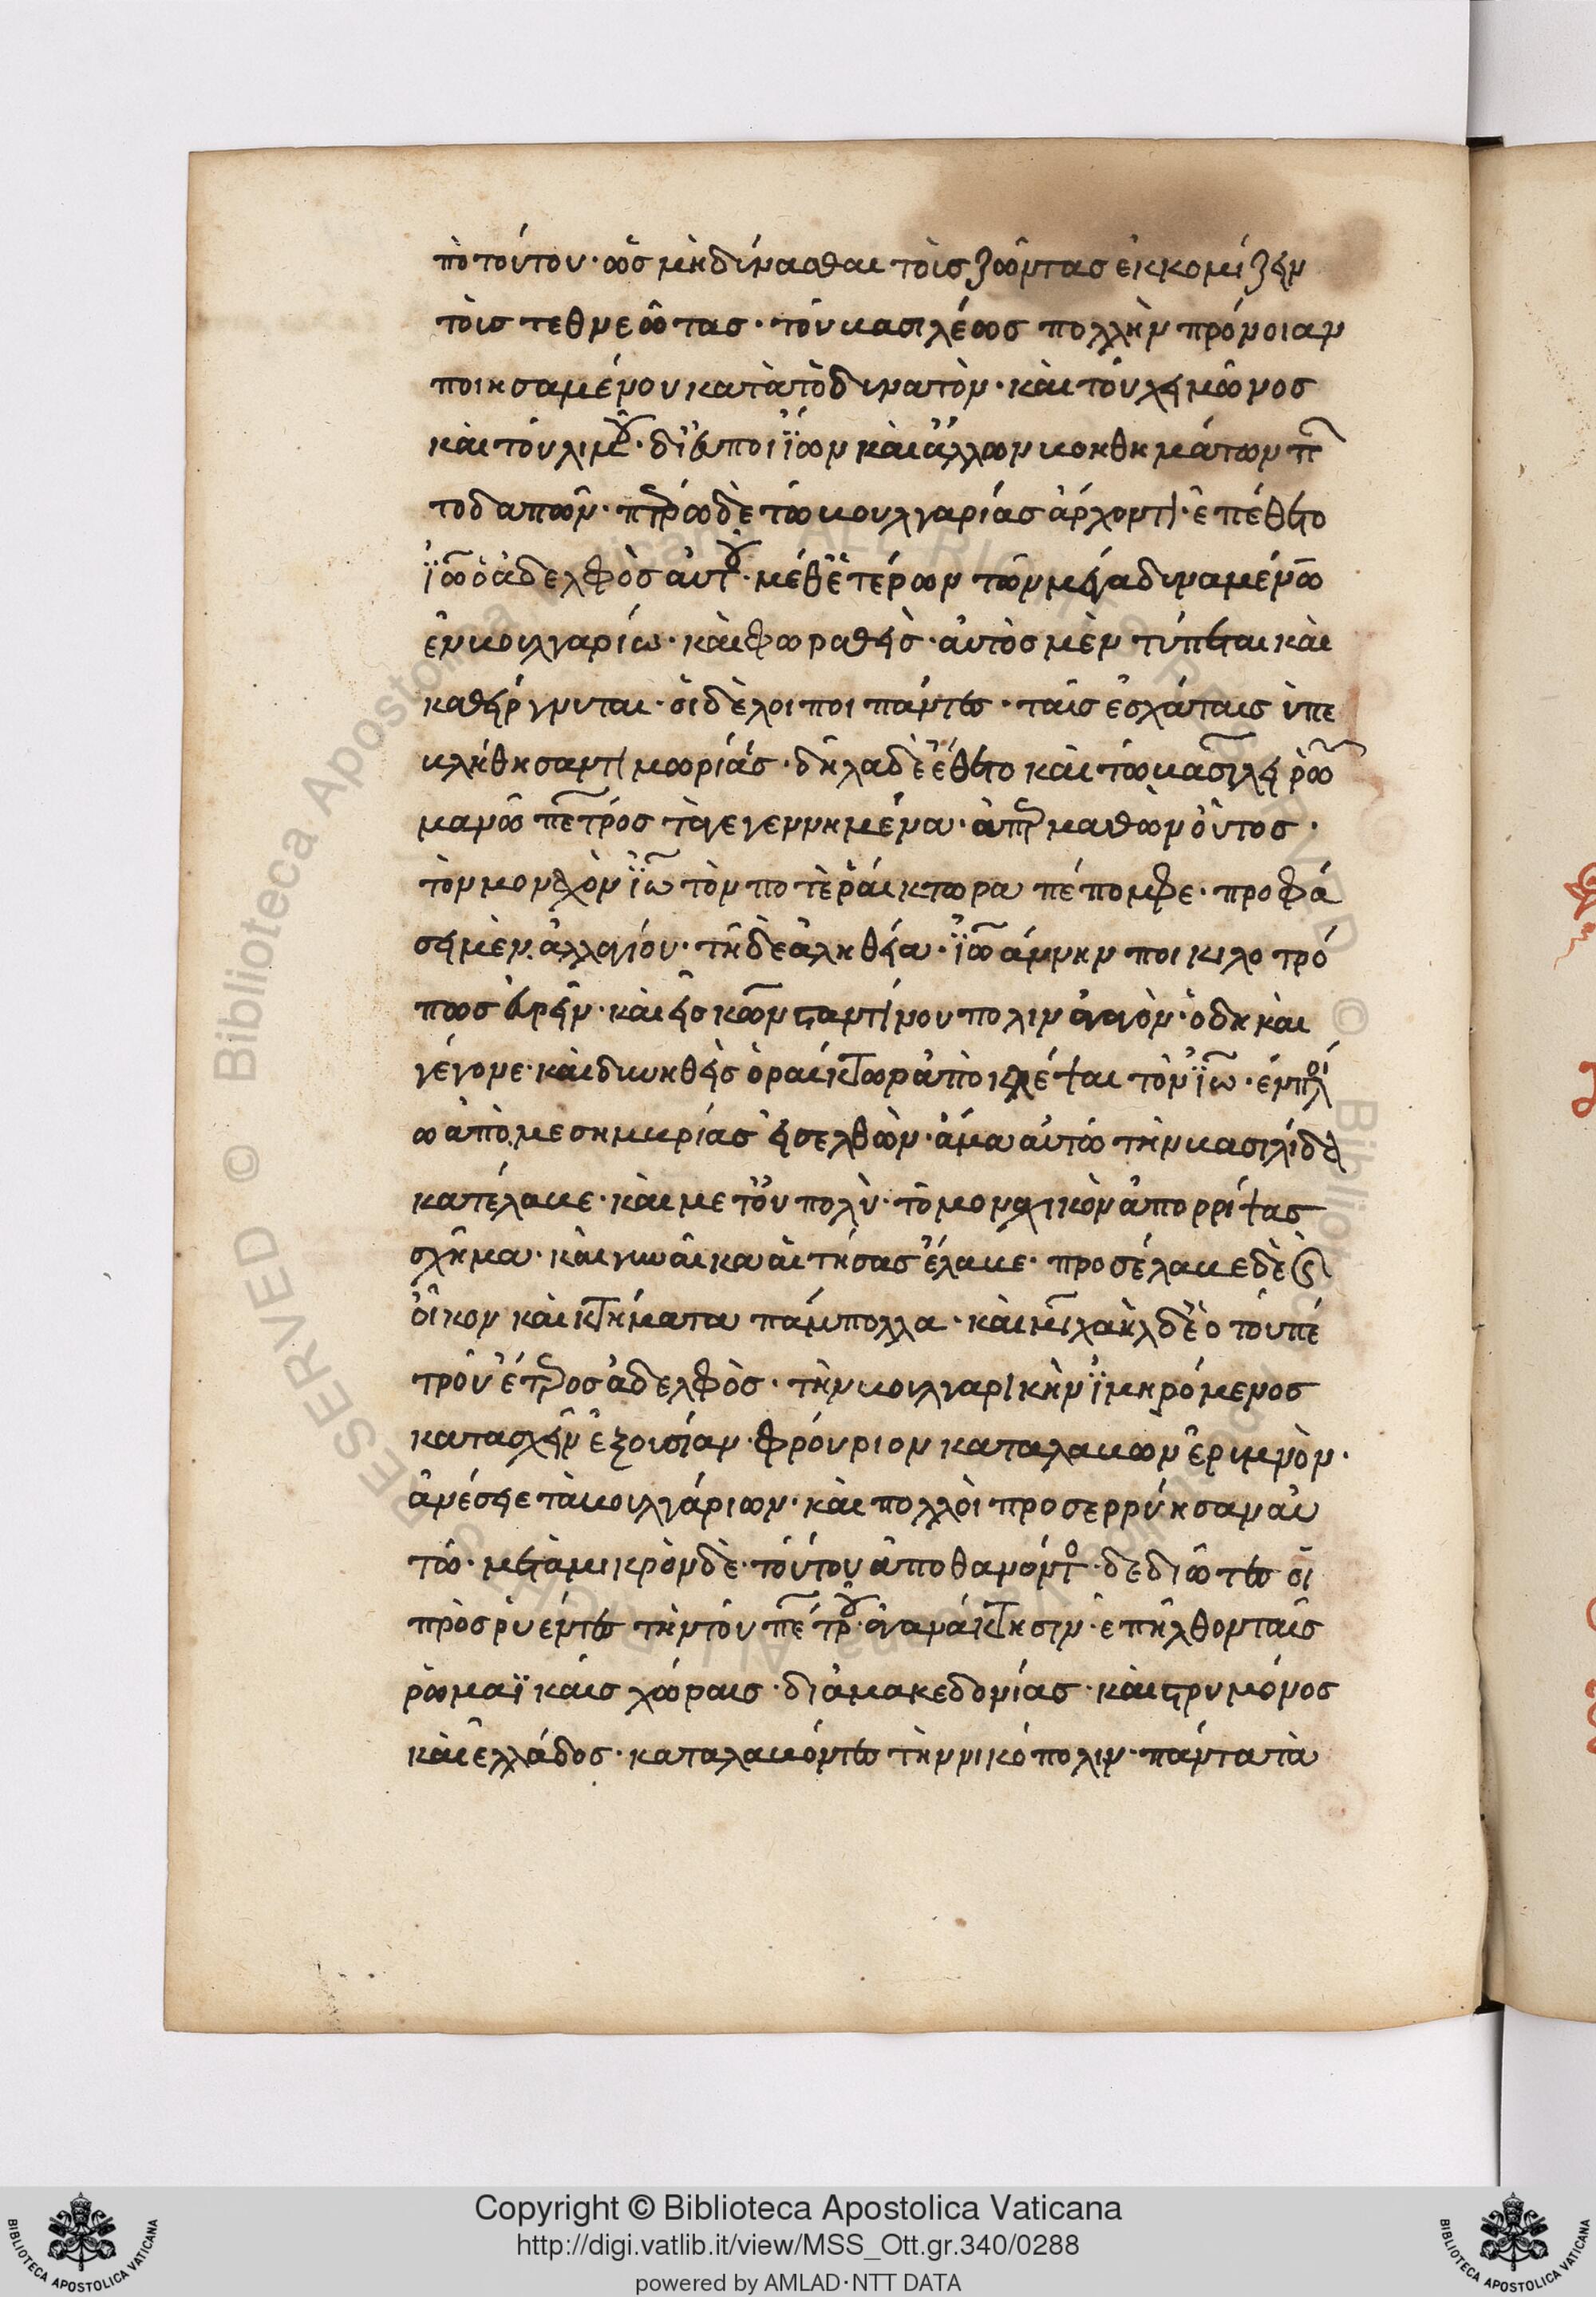 πο τούτου· ὡς μὴ δύνασθαι τοὺς ζῶντας ἐκκομίζειν
τοὺς τεθνεῶτας· τοῦ βασιλέως πολλὴν πρόνοιαν
ποιησαμένου κατὰ τὸ δυνατὸν· καὶ τοῦ χειμῶνος
καὶ τοῦ λιμοῦ· δι' εὐποιϊῶν καὶ ἄλλων βοηθημάτων π
τοδαπῶν· πέτρω δὲ τῶ βουλγαρίας ἄρχοντι· ἐπέθετο
ϊω ὁ ἀδελφὸς αὐτοῦ· μέθ' ἑτέρων τῶν μεγα δυναμένω
ἐν βουλγαρίω· καὶ φωραθεὶς· αὐτὸς μὲν τύπτεται καὶ
καθείργνυται· οἱ δὲ λοιποι πάντες· ταῖς ἐσχάταις ὑπε
βλήθησαν τιμωρίαις· δῆλα δὲ ἔθετο καὶ τῶ βασιλεῖ ῥω
μανῶ πέτρος τὰ γεγεννημένα· ἅπερ μαθὼν οὗτος·
τὸν μοναχὸν ϊω τὸν ποτὲ ῥαίκτωρα πέπομφε· προφά
σει μὲν ἀλλαγίου· τῆ δὲ ἀληθεία· ϊω ἀμύνην ποικιλοτρό
πως εὑρεῖν· καὶ εἰς κωνσταντίνου πολιν ἀγαγὸν· ὁ δὴ καὶ
γέγονε· καὶ διωχθεὶς ὁ ραίκτωρ ἀποκλέπται τὸν ϊω· ἐν πλοί
ω ἀπὸ μεσημβρίας εἰσελθὼν· ἅμα αὐτῶ τὴν βασιλίδα
κατέλαβε· καὶ μετ' οὐ πολὺ· τὸ μοναχικὸν ἀπορρίψας
σχῆμα· καὶ γυναῖκα αἰτήσας ἔλαβε· προσέλαβε δὲ καὶ
οἶκον καὶ κτήματα πάμπολλα· καὶ μιχαὴλ δὲ ὁ τοῦ πέ
τρου ἕτερος ἀδελφὸς· τὴν βουλγαρικὴν ϊμηρόμενος
κατασχεῖν ἐξουσίαν· φρούριον καταλαβων ἐρυμνὸν·
ἀνέσειε τὰ βουλγάριων· καὶ πολλοὶ προσερρύησαν αὐ
τῶ· μετὰ μικρὸν δὲ· τούτου ἀποθανόντος· δεδιῶτες οἱ
πρὸσρυέντες τὴν τοῦ πέτρου ἀνανάκτησιν· ἐπῆλθον ταῖς
ρωμαϊκαῖς χώραις· διὰ μακεδονίας· καὶ στρυμόνος
καὶ ἑλλάδος· καταλαβόντες τὴν νικόπολιν· πάντα τὰ
Copyright © Biblioteca Apostolica Vaticana
http://digi.vatlib.it/view/MSS_Ott.gr.340/0288
powered by AMLAD·NTT DATA